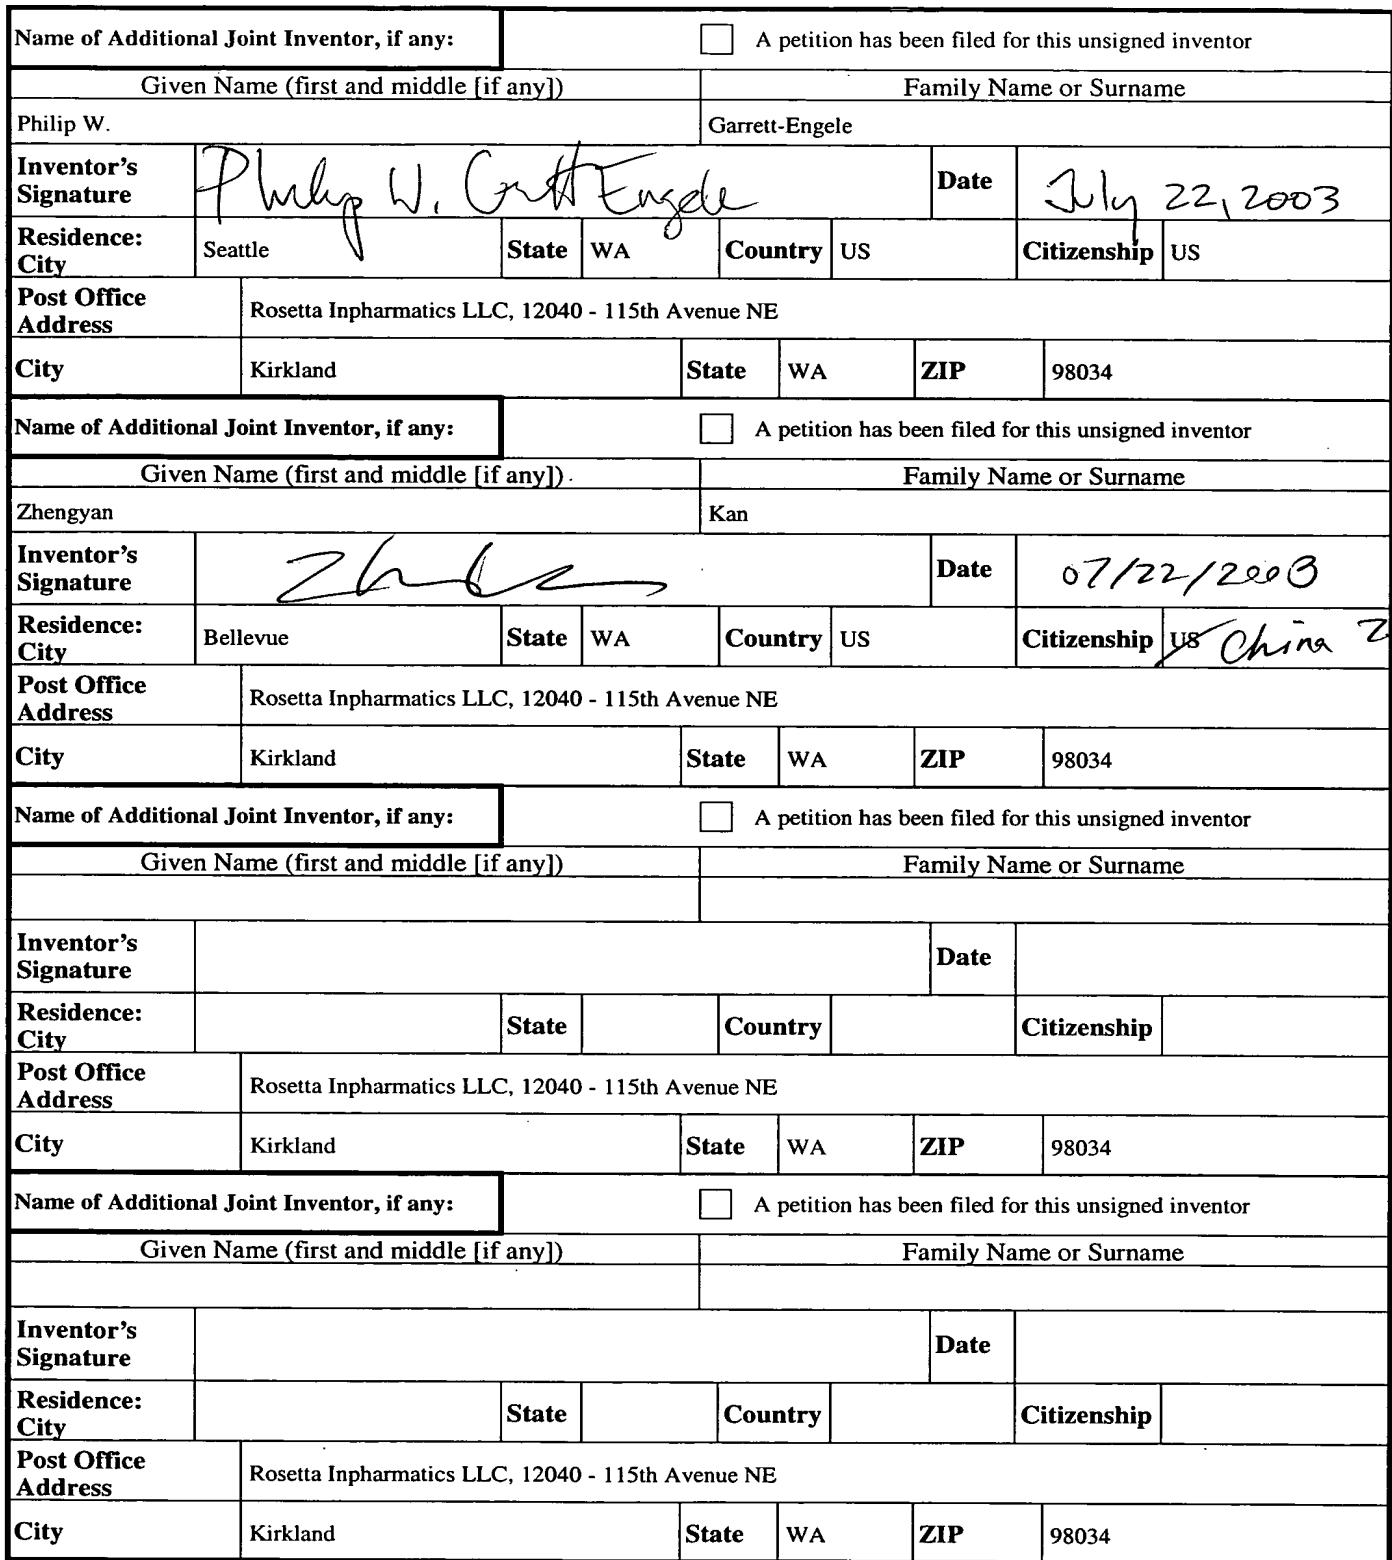 Name of Additional Joint Inventor, if any: A petition has been filed for this unsigned inventor
Given Name (first and middle [if any]) Family Name or Surname
Philip W. Garrett-Engele
Inventor's Signature Philip W. Garrett-Engele Date July 22, 2003
Residence: City Seattle State WA Country US Citizenship US
Post Office Address Rosetta Inpharmatics LLC, 12040 - 115th Avenue NE
City Kirkland State WA ZIP 98034
Name of Additional Joint Inventor, if any: A petition has been filed for this unsigned inventor
Given Name (first and middle [if any]) Family Name or Surname
Zhengyan Kan
Inventor's Signature Date 07/22/2003
Residence: City Bellevue State WA Country US Citizenship US China Z
Post Office Address Rosetta Inpharmatics LLC, 12040 - 115th Avenue NE
City Kirkland State WA ZIP 98034
Name of Additional Joint Inventor, if any: A petition has been filed for this unsigned inventor
Given Name (first and middle [if any]) Family Name or Surname
Inventor's Signature Date
Residence: City State Country Citizenship
Post Office Address Rosetta Inpharmatics LLC, 12040 - 115th Avenue NE
City Kirkland State WA ZIP 98034
Name of Additional Joint Inventor, if any: A petition has been filed for this unsigned inventor
Given Name (first and middle [if any]) Family Name or Surname
Inventor's Signature Date
Residence: City State Country Citizenship
Post Office Address Rosetta Inpharmatics LLC, 12040 - 115th Avenue NE
City Kirkland State WA ZIP 98034